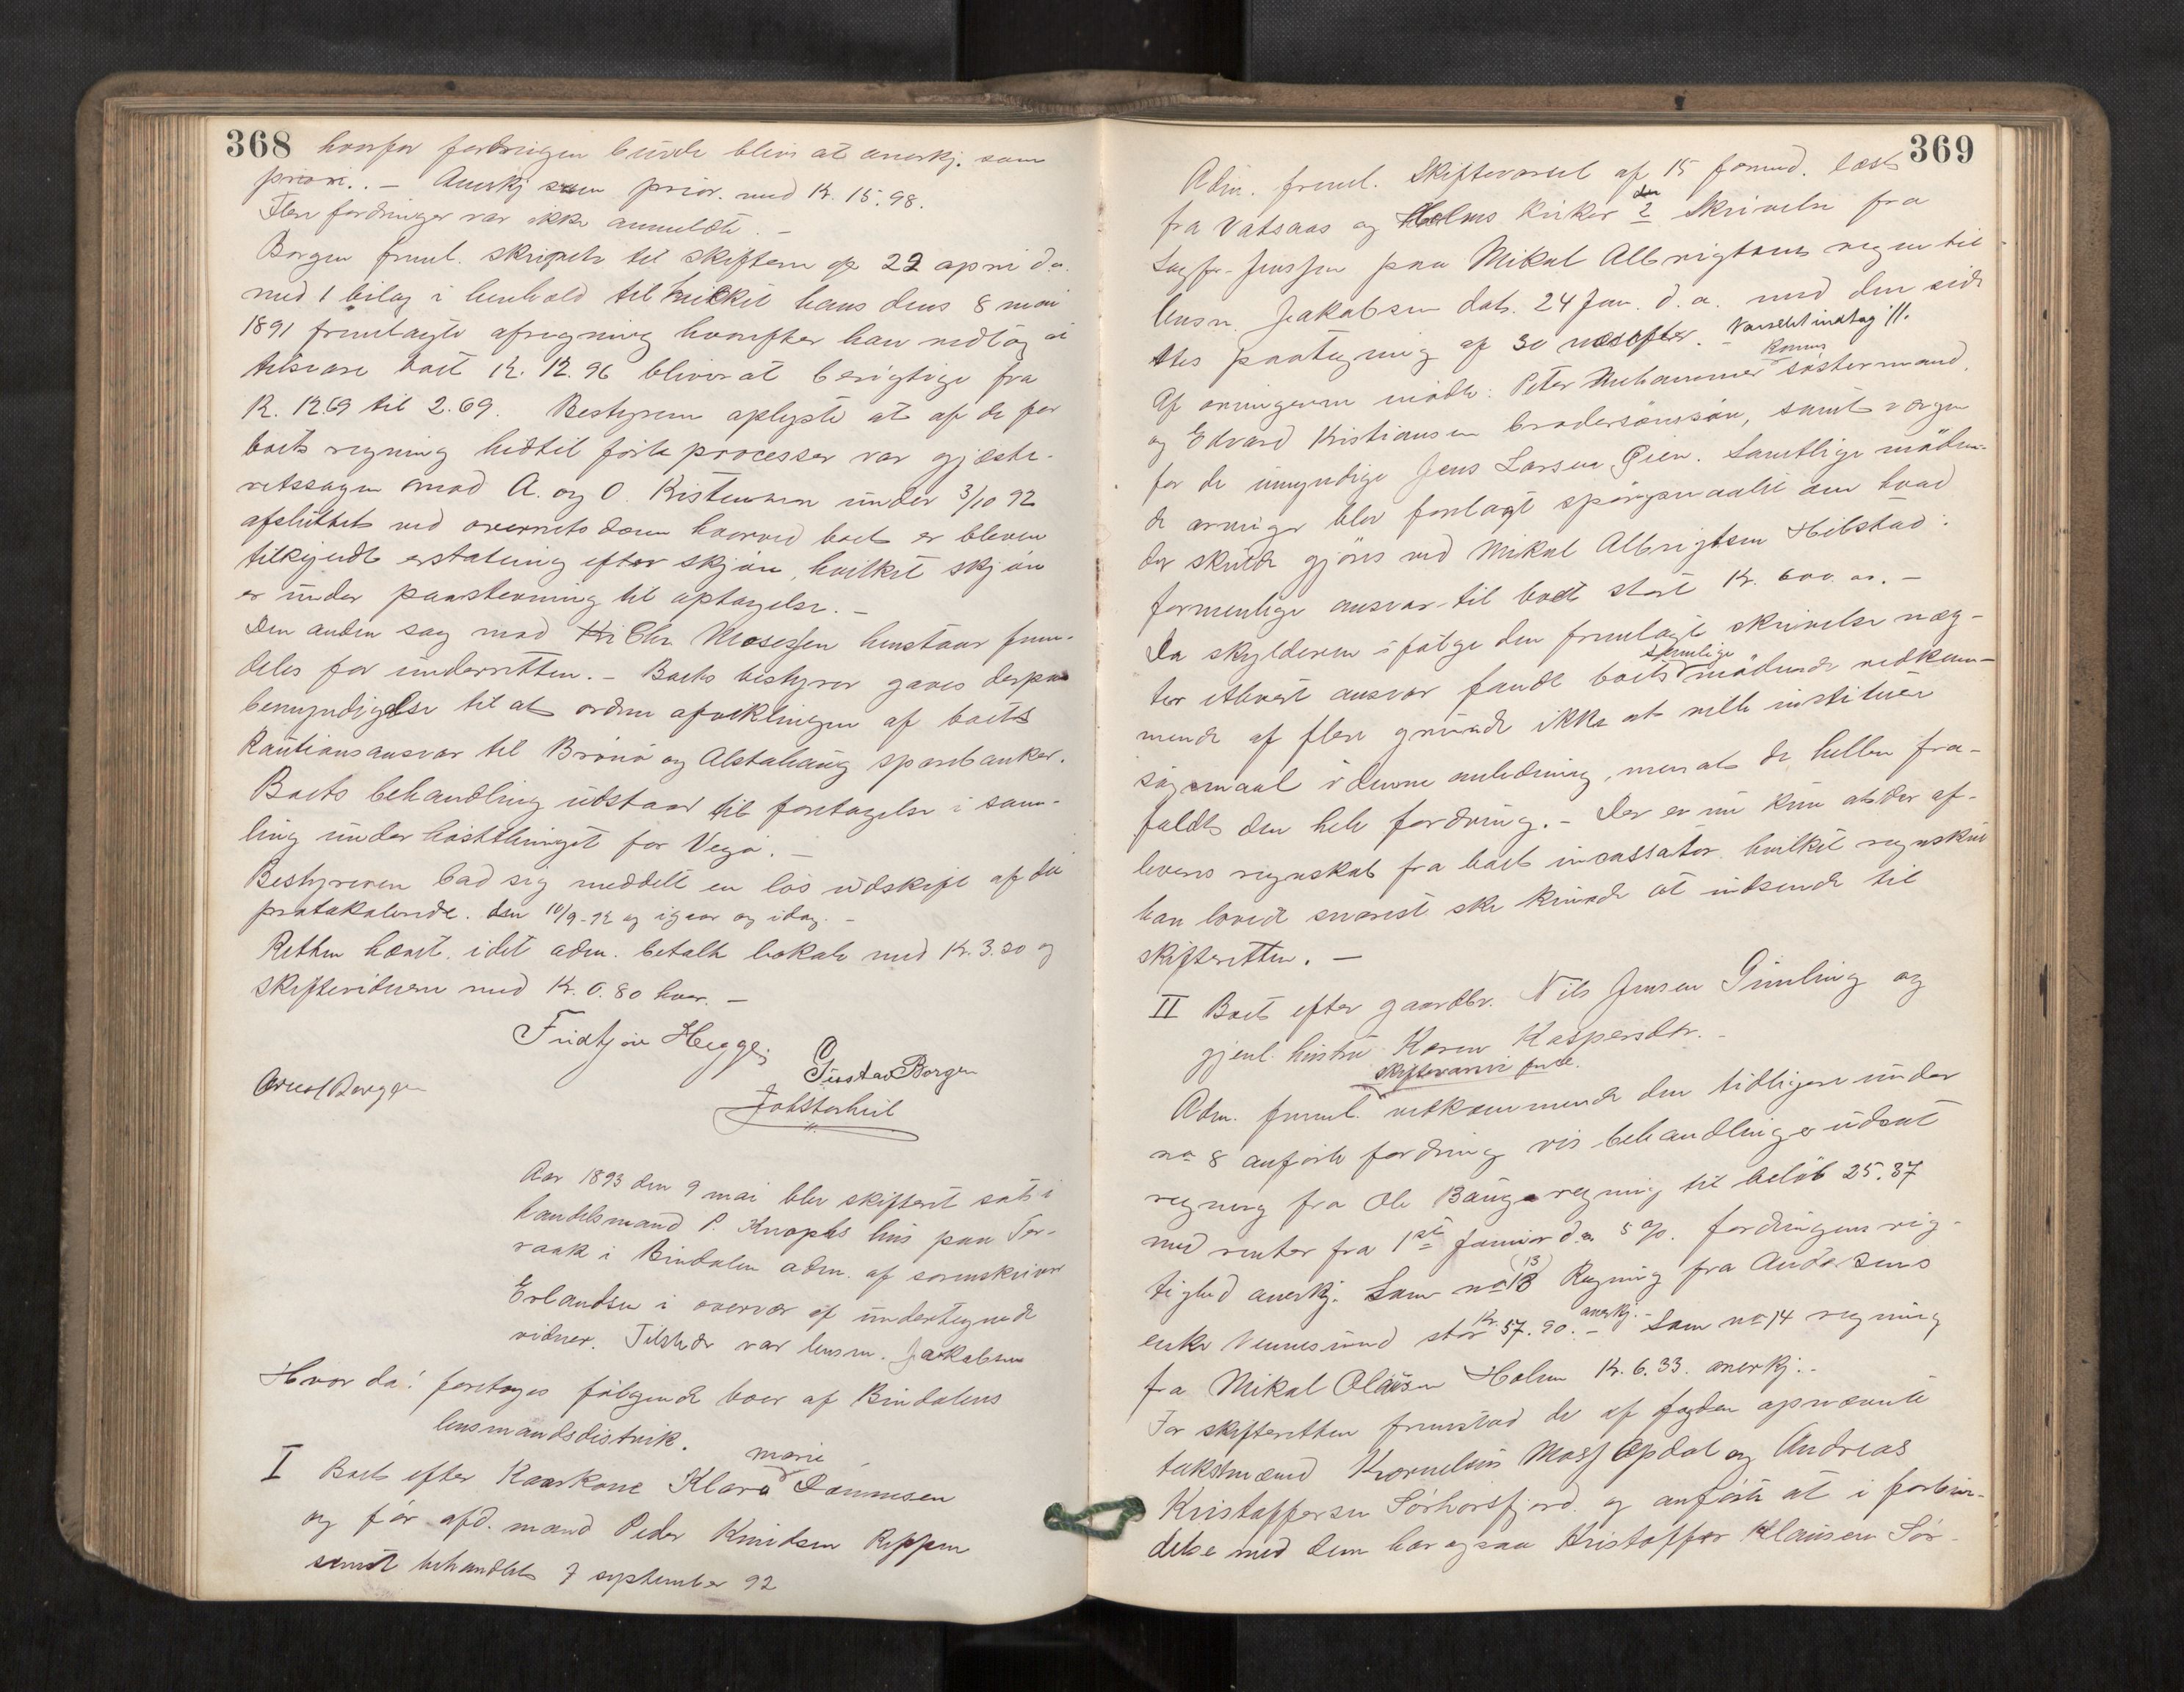 368
hvorfor fordringen burde blive at anerkj. som
priori. . – Anerkj som prior. med Kr. 15.98.
Flere fordringer var ikke anmeldte. –
Borgen freml. skrivelse til skifteren af 22 april d.a.
med 1 bilag i henhold til hvilket hans dens 8 mai
1891 fremlagte afregning hvorefter han vedtog at
tilsvare boet Kr. 12.96 bliver at berigtige fra
Kr. 12.69 til 2.69. Bestyreren oplyste at af de for
boets regning hidtil førte processer var gjæste-
retssagen mod A. og O. Kristensen under 3/10 92
afsluttet ved overretsdom hvorved boet er bleven
tilkjendt erstatning efter skjøn, hvilket skjøn
er under paastevning til optagelse. –
Den anden sag mod Chr. Mosessen henstaar frem-
deles for underretten. – Boets bestyrer gaves derpaa
bemyndigelse til at ordne afviklingen af boets
Kautionsansvar til Brønø og Alstahaug sparebanker.
Boets behandling udstaar til foretagelse i sam-
ling under høstthinget for Vega. –
Bestyreren bad sig meddelt en løs udskrift af det
protokolerede den 10/9-92 og igaar og idag. –
Retten hævet, idet adm. betalte lokale med Kr. 3.20 og
skiftevidnerne med Kr. 0.80 hver. –
Fridtjov Hegge
Gustav Borgen
Aar 1893 den 9 mai blev skifteret sat i
handelsmand P. Knophs hus paa Ter-
raak i Bindalen adm. af sorenskriver
Erlandsen i overvær af undertegnede
vidner. Tilstede var lensm. Jakobsen
Hvor da! foretoges følgende boer af Bindalens
lensmandsdistrik.
I Boet efter Kaarkone Klara marie Dønnesen
og før afd. mand Peder Knudsen Reppen
senest behandlet 7 september 92
369
Adm. freml. Skiftevarsel af 15 formd. læst
fra Vatsaas og Holms kirker den 2 Skrivelse fra
Sagfr. Jenssen paa Mikal Albrigtsens vegne til
lensm. Jakobsen dat. 24 Jan. d.a. med den sid-
stes paategning af 30 næstefter. – Varselet indtag //.
Af arvingerne mødte: Peter søstermand,
og Edvard Kristiansen brodersønssøn, samt værgen
for de umyndige Jens Larsen Gien. Samtlige møden-
de arvinger blev forelagt spørgsmaalet om hvad
der skulde gjøres ved Mikal Albrigtsen Hilstad:
formentlige ansvar til boet stort Kr. 600.00. –
Da skylderen ifølge den fremlagte skrivelse næg-
ter ethvert ansvar fandt boets samtlige mødende vedkom-
mende af flere grunde ikke at ville instituere
søgsmaal i denne anledning, men at de hellere fra-
faldt den hele fordring. – Der er nu kun at der af-
leveres regnskab fra boets incassator hvilket regnskab
han lovede snarest ske kunde at indsende til
skifteretten. –
II Boet efter gaardbr. Nils Jensen Simling og
gjenl. hustru Karen Kaspersdtr. –
Adm. freml. skiftevarsel vedkommende den tidligere under
no 8 anførte fordring hvis behandling er udsat
regning fra Ole Baug regning til beløb 25.37
med renter fra 1ste Januar d.a. 5 %. fordringens rig-
tighed anerkj. Som no 13 (13) Regning fra Andersens
enke Vennesund stor Kr. 57.90. – anerkj. – Som no 14 regning
fra Mikal Olausen Holm Kr. 6.33. anerkj. –
For skifteretten fremstod de af fogden opnævnte
takstmænd Kornelius Mass Opdal og Andreas
Kristoffersen Sørhorsfjord og anførte at i forbin-
delse med dem har ogsaa Kristoffer Klausen Sør-